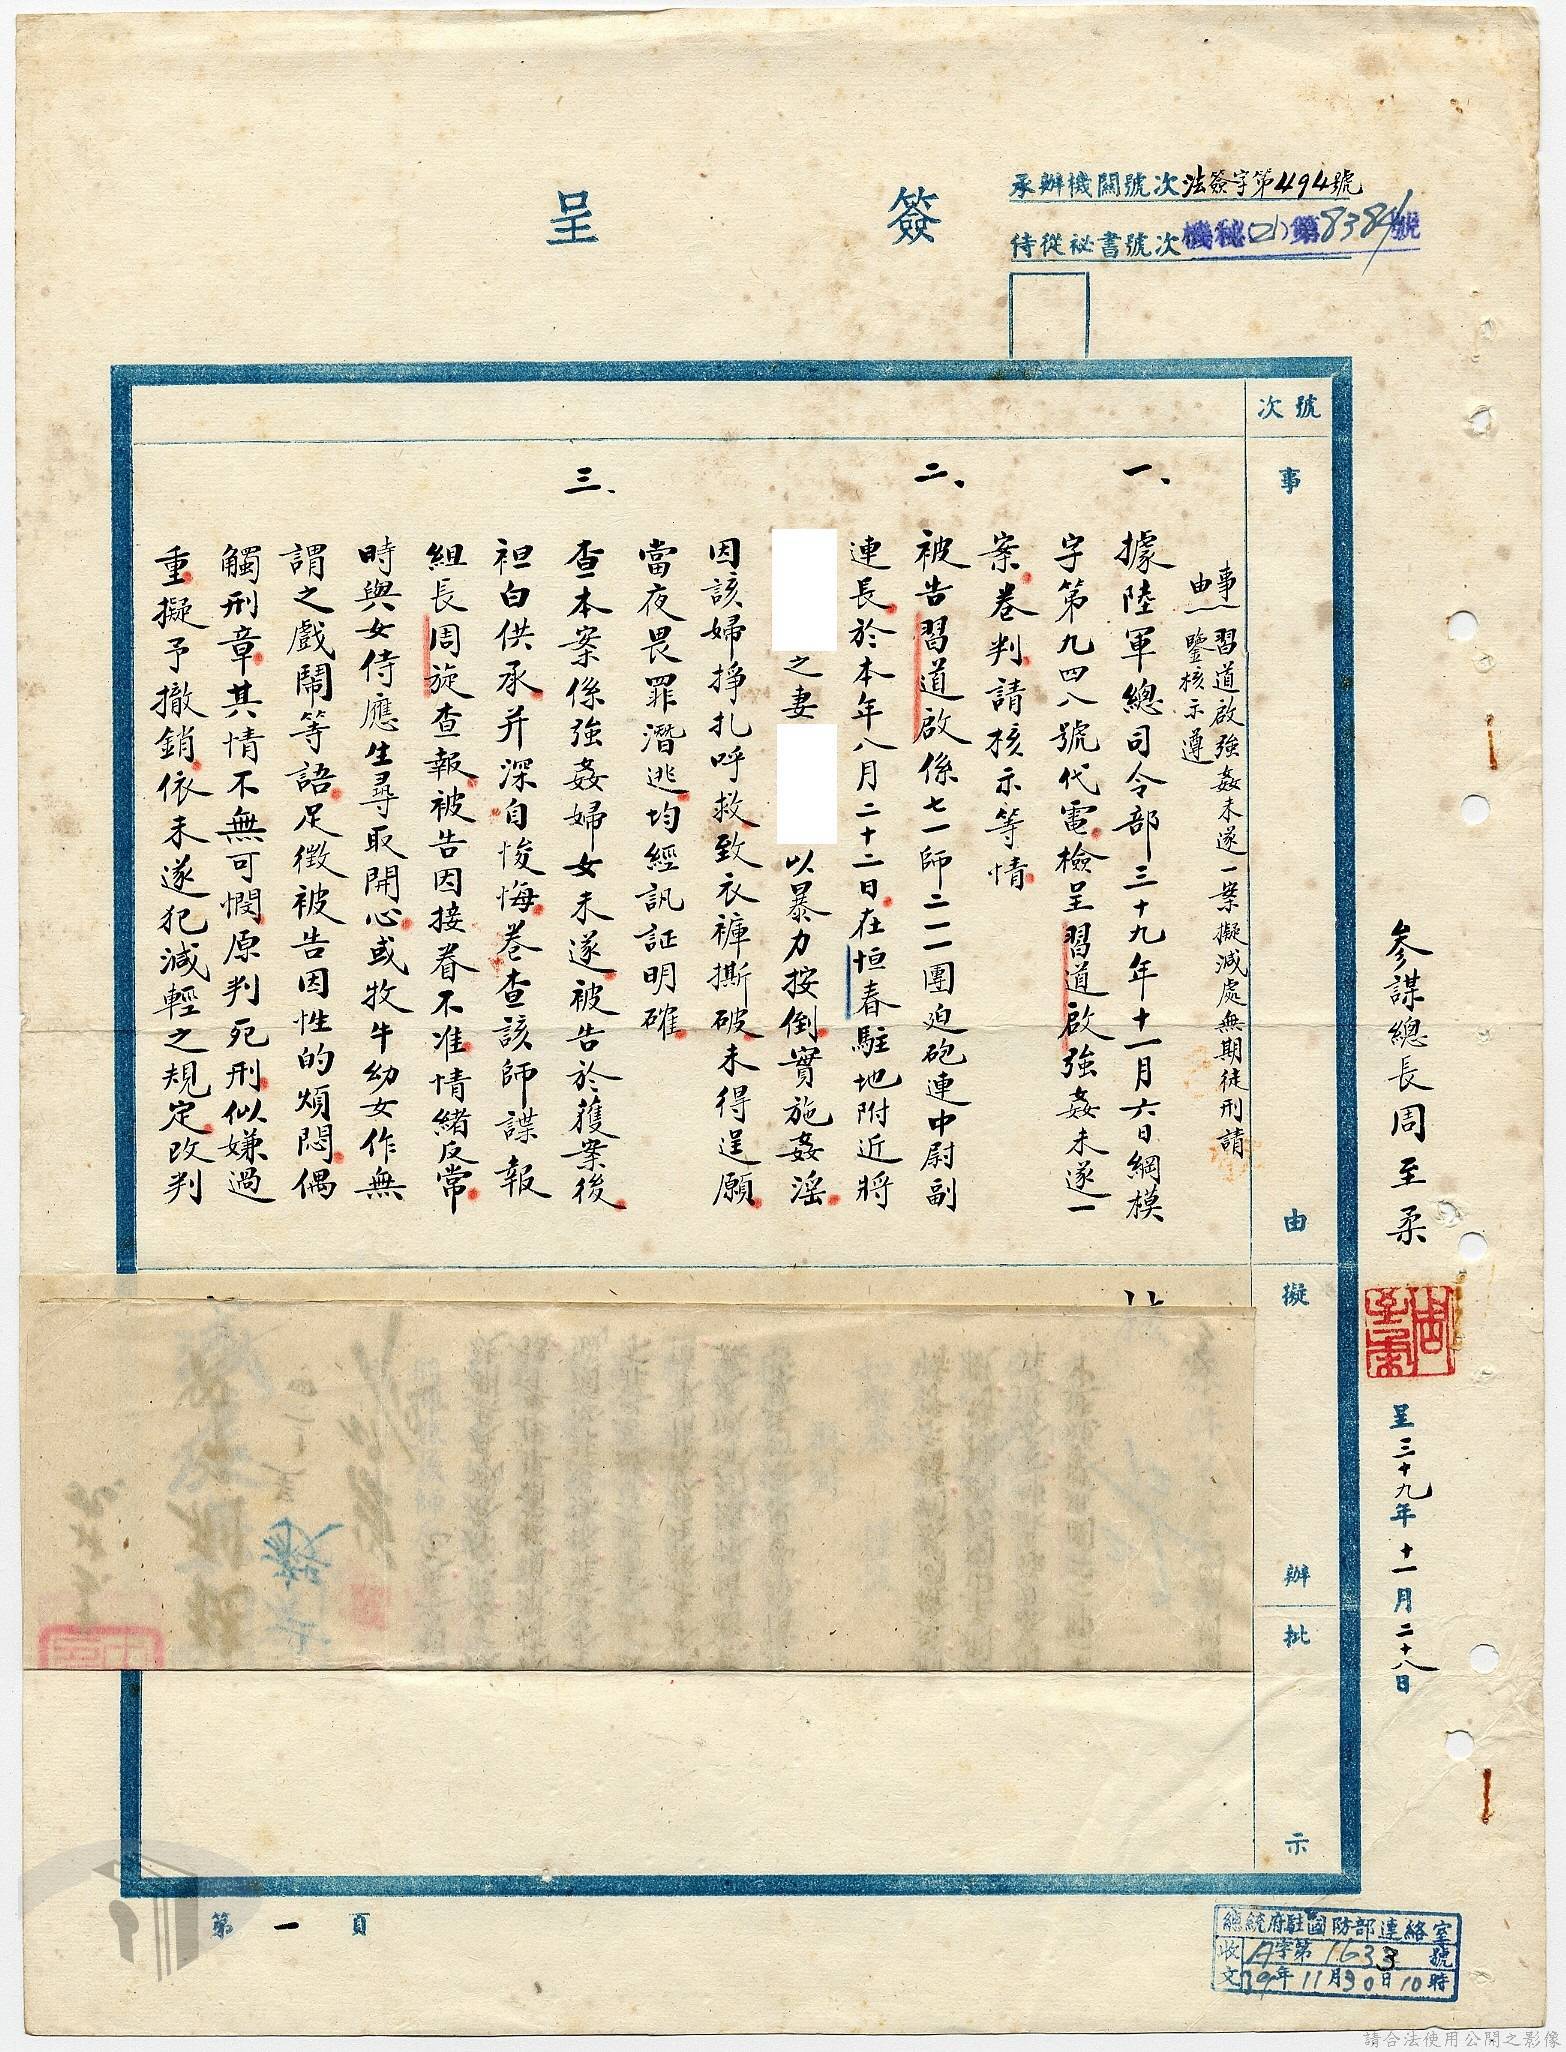 簽呈
承辦機關號次法簽字第494號
侍從祕書號次機秘(乙)第8384號
參謀總長周至柔
呈三十九年十一月二十八日
號次
事由
擬辦
批示
事由：習道啟強姦未遂一案擬減處無期徒刑請
鑒核示遵
一、據陸軍總司令部三十九年十一月六日綱模
字第九四八號代電檢呈習道啟強姦未遂一
案卷判請核示等情
二、被告習道啟係七一師二一一團迫砲連中尉副
連長於本年八月二十二日在恒春駐地附近將
之妻 以暴力按倒實施姦淫
因該婦掙扎呼救致衣褲撕破未得逞願
當夜畏罪潛逃均經訊証明確
三、查本案係強姦婦女未遂被告於獲案後
袒白供承并深自悛悔卷查該師諜報
組長周旋查報被告因接眷不准情緒反常
時與女侍應生尋取開心或牧牛幼女作無
謂之戲鬧等語足徵被告因性的煩悶偶
觸刑章其情不無可憫原判死刑似嫌過
重擬予撤銷依未遂犯減輕之規定改判
第一頁
總統府駐國防部連絡室
收文 A字第1633號
39年11月30日10時
請合法使用公開之影像